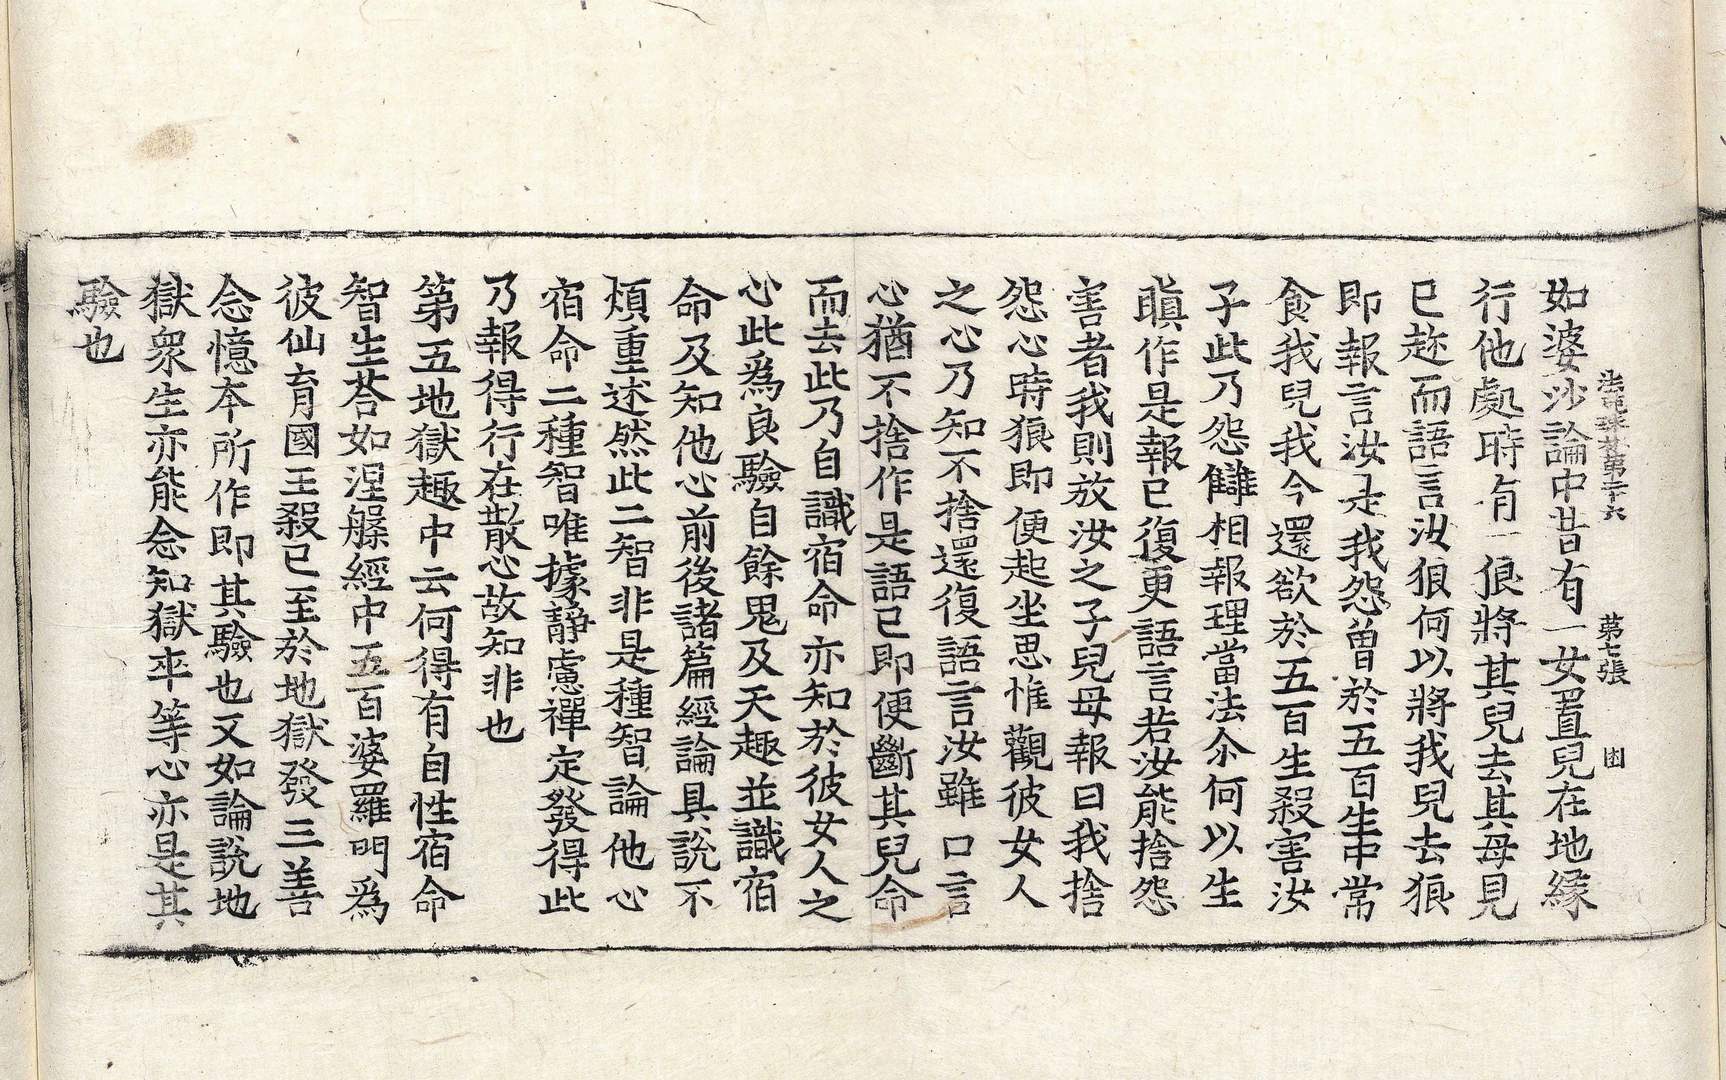 法苑珠林第二十六　第七張　困
如婆沙論中昔有一女置兒在地緣
行他處時有一狼將其兒去其母見
已趂而語言汝狼何以將我兒去狼
即報言汝是我怨曽於五百生中常
食我兒我今還欲於五百生殺害汝
子此乃怨讎相報理當法尒何以生
瞋作是報已復更語言若汝能捨怨
害者我則放汝之子兒母報曰我捨
怨心時狼即便起坐思惟觀彼女人
之心乃知不捨還復語言汝雖口言
心猶不捨作是語已即便斷其兒命
而去此乃自識宿命亦知於彼女人之
心此為良驗自餘鬼及天趣並識宿
命及知他心前後諸篇經論具說不
煩重述然此二智非是種智論他心
宿命二種智唯據靜慮禪定發得此
乃報得行在散心故知非也
第五地獄趣中云何得有自性宿命
智生荅如涅槃經中五百婆羅門為
彼仙育國王殺已至於地獄發三善
念憶本所作即其驗也又如論說地
獄衆生亦能念知獄卒等心亦是其
驗也